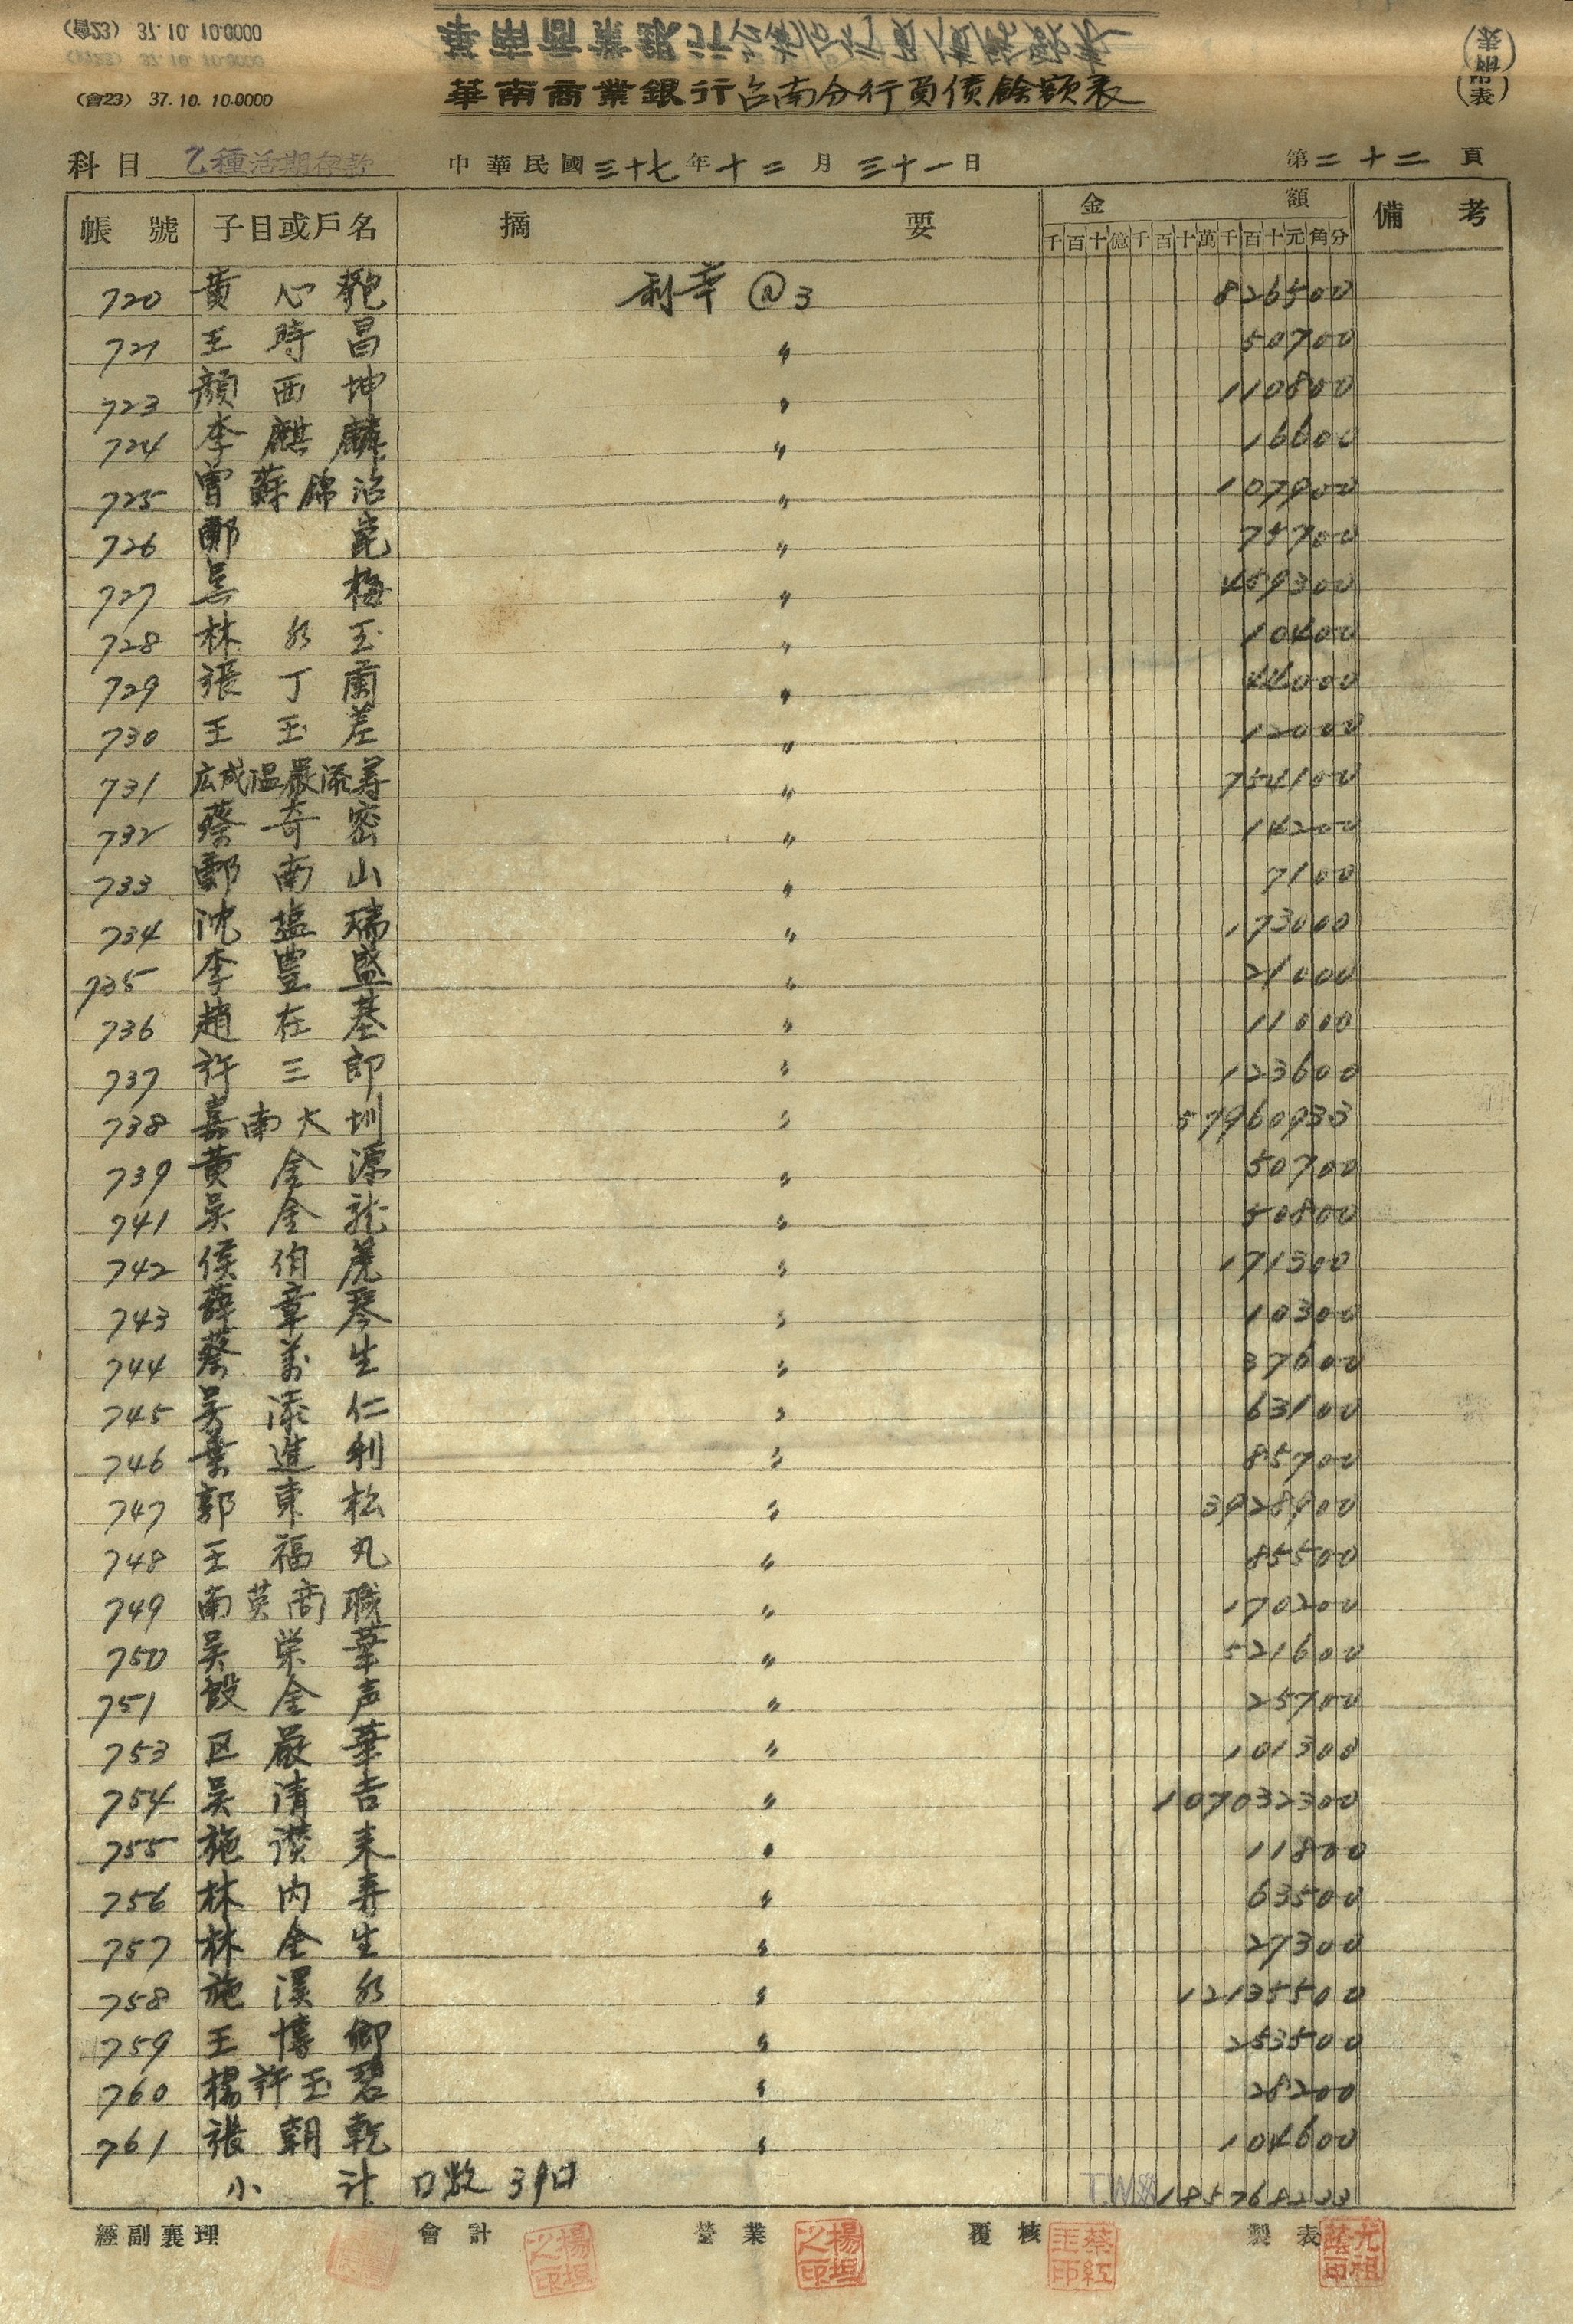 (會23) 37.10.10.0000
華南商業銀行台南分行負債餘額表
(附表)
科目 乙種活期存款 中華民國三十七年十二月三十一日 第二十二頁
帳號 子目或戶名 摘要 金額 備考
千百十億千百十萬千百十元角分
720 黃心匏 利率 @3 826500
721 王時昌 〃 50700
723 顏西坤 〃 110800
724 李麒麟 〃 16600
725 曾蘇錦治 〃 107900
726 鄭崑 〃 75700
727 吳梅 〃 459300
728 林水玉 〃 10400
729 張丁蘭 〃 44000
730 王玉差 〃 12000
731 広成温嚴添尋 〃 754100
732 蔡奇密 〃 14200
733 鄭南山 〃 7100
734 沈塩瑞 〃 173000
735 李豊盛 〃 21000
736 趙在基 〃 11000
737 許三郎 〃 123600
738 嘉南大圳 〃 57960933
739 黃金源 〃 50700
741 吳金龍 〃 50800
742 侯伯虎 〃 171300
743 薛章琴 〃 10300
744 蔡萬生 〃 37600
745 吳添仁 〃 63100
746 葉進利 〃 85700
747 郭東松 〃 3928900
748 王福丸 〃 85500
749 南英商職 〃 170200
750 吳栄華 〃 521600
751 金声 〃 25700
753 区嚴華 〃 101300
754 吳清吉 〃 107032300
755 施讃来 〃 11800
756 林内 〃 63500
757 林金生 〃 27300
758 施漢水 〃 12135500
759 王博卿 〃 253500
760 楊許玉碧 〃 28200
761 張朝乾 〃 104600
小計 口数 39口 T.W$ 185768233
經副襄理 會計 營業 覆核 製表
楊坦之印 楊坦之印 蔡紅玉印